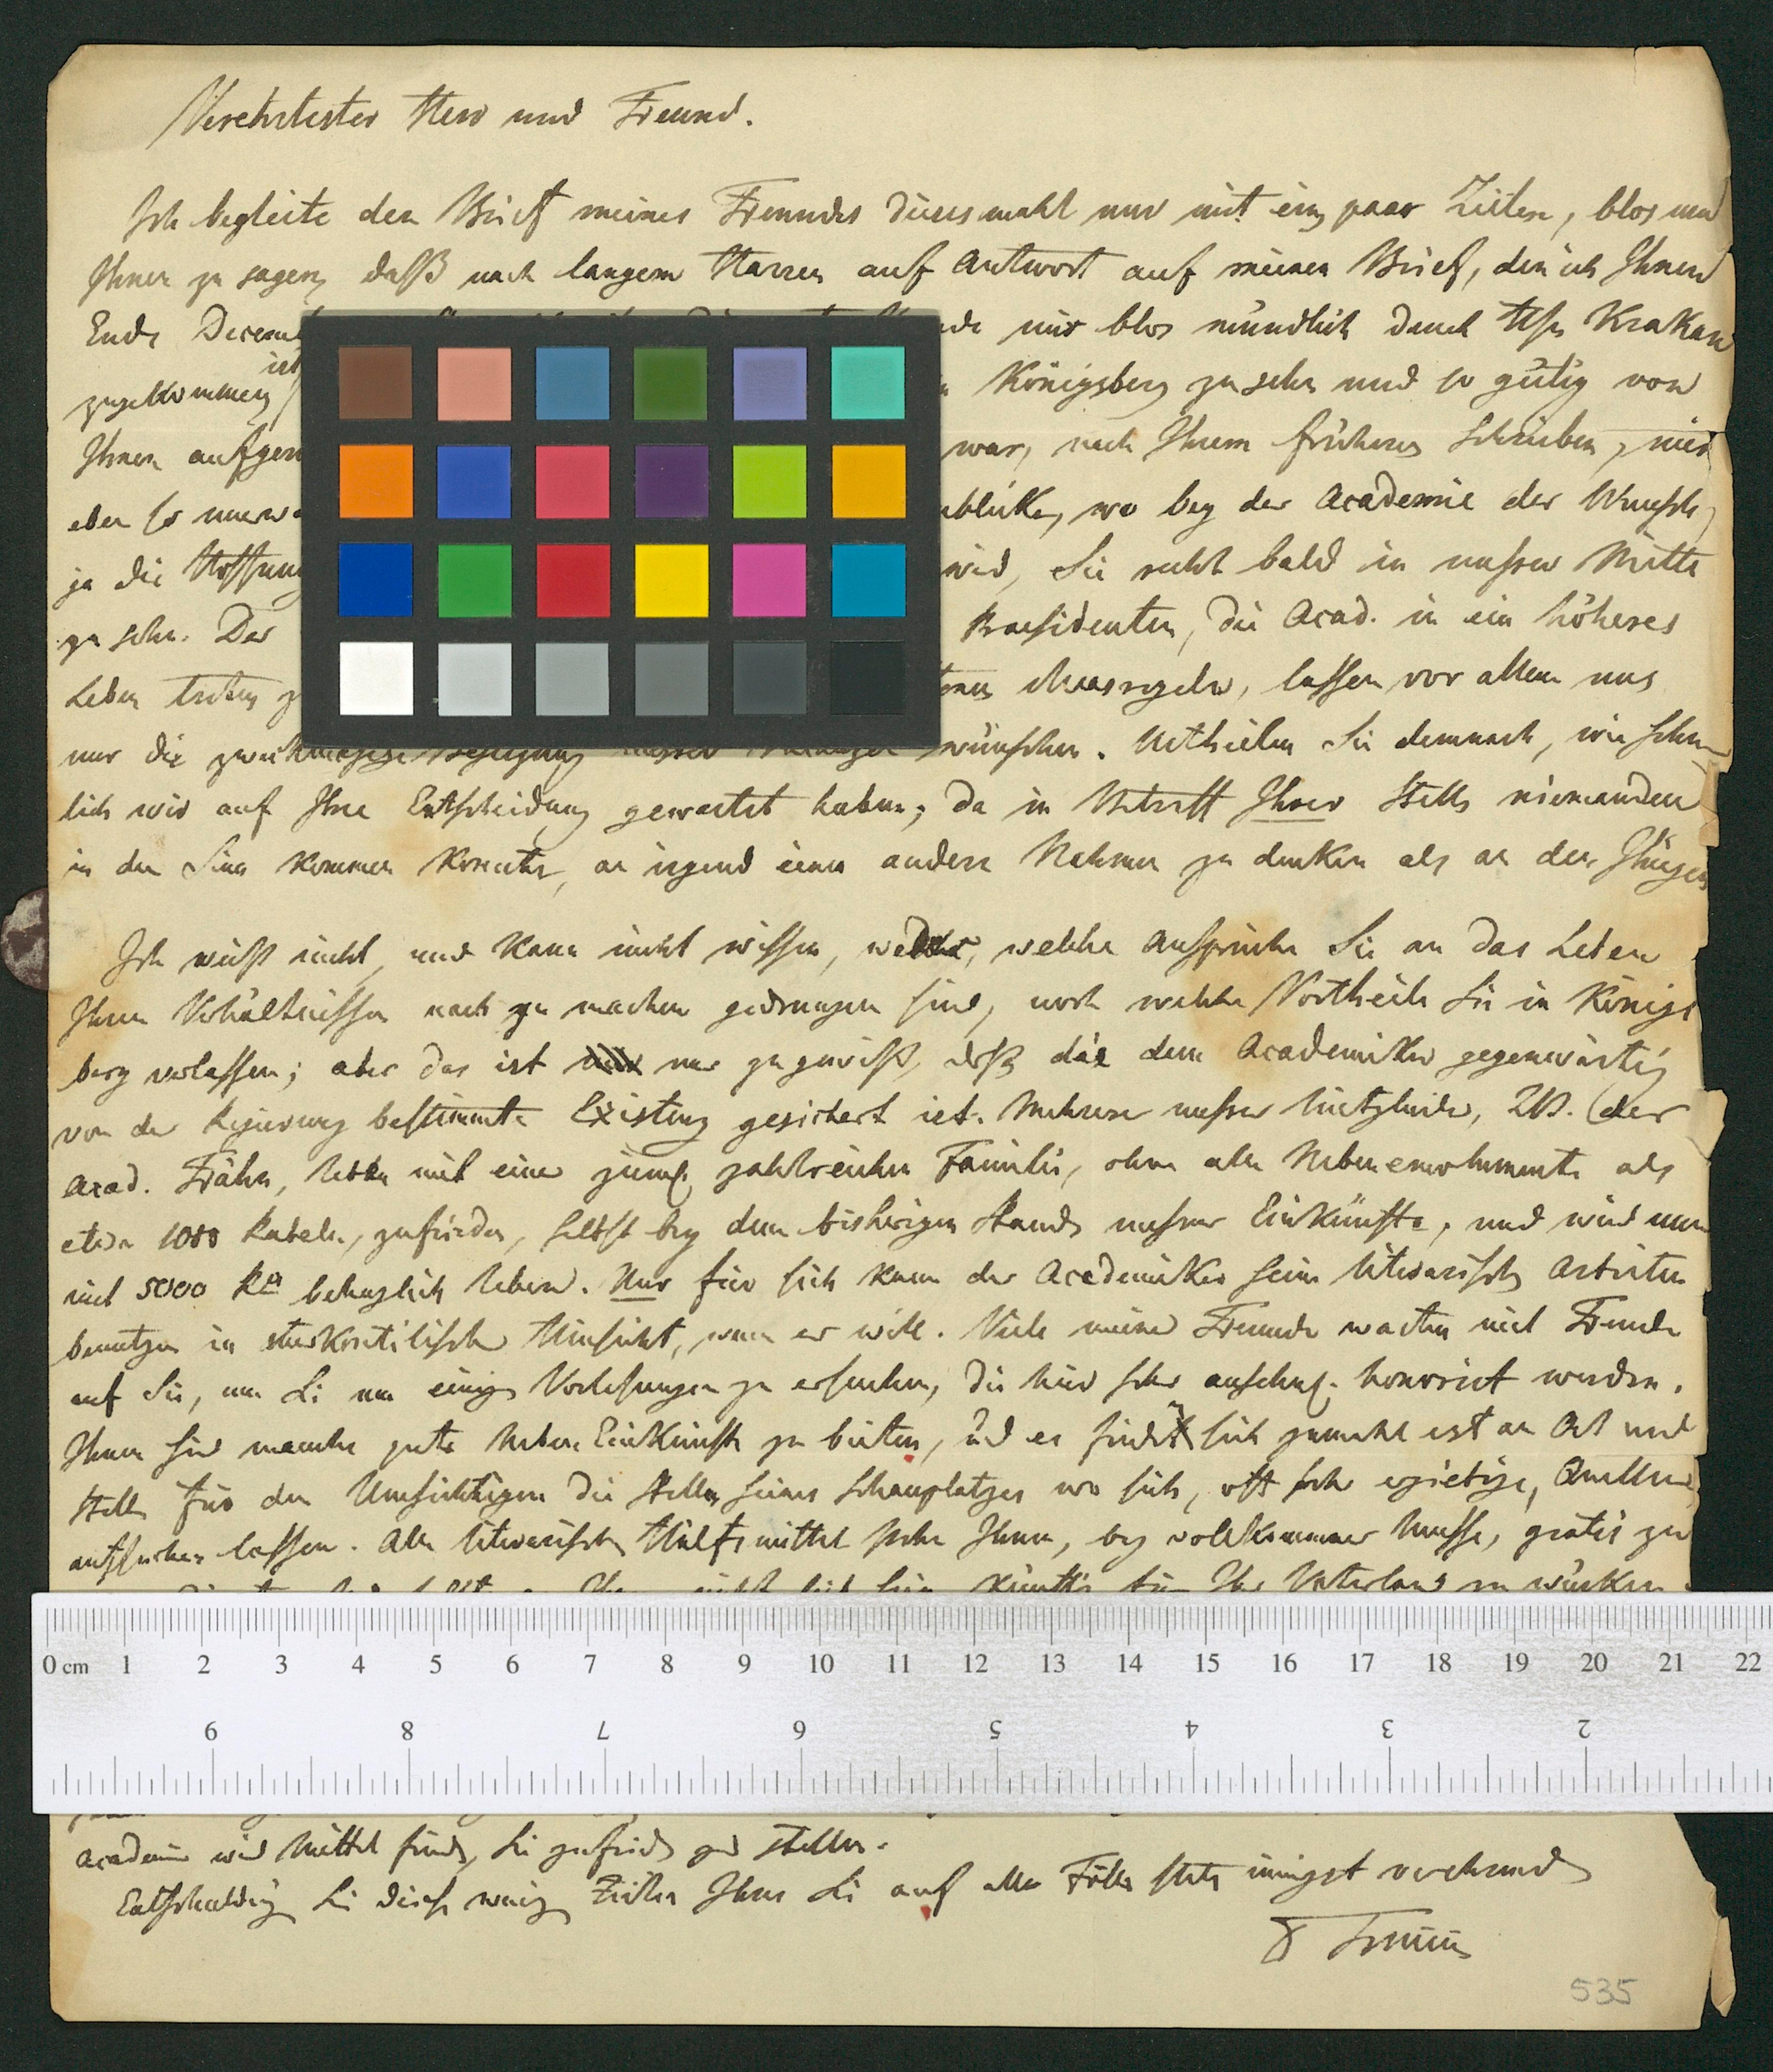 Verehrtester Herr und Freund.
Ich begleite den Brief meines Freundes diessmahl nur mit ein paar Zeilen, blos um
Ihnen zu sagen, daß nach langem Harren auf Antwort auf meinen Brief, den ich Ihnen
Ende Decem mir blos mündlich durch
zugekommen ist Königsberg zu sehn und so gütig von
Ihnen aufgen war, nach Ihrem früheren Schreiben, mir
eben so unerw blicke, wo bey der Academie der Wunsch,
ja die Hoffnung wird, Sie recht bald in unsrer Mitte
zu sehn. Der Praesidenten, die Acad. in ein höheres
Leben treten z Maasregeln, lassen vor allem uns
nur die zweckmässige wünschen. Urtheilen Sie demnach, wie sehn-
lich wir auf Ihre Entscheidung gewartet haben; da in Betreff Ihrer Stelle niemanden
in den Sinn kommen konnte, an irgend einen andern Nahmen zu denken als an den Ihrigen
Ich weiß nicht, und kann nicht wissen, welche Ansprüche Sie an das Leben
Ihren Verhältnissen nach zu machen gedrungen sind, noch welche Vortheile Sie in Königs
berg verlassen; aber das ist nur zu gewiß, daß die dem Academiker gegenwärtig
von der Regierung bestimmte Existenz gesichert ist. Mehrere unsrer Mitglieder, ZB. der
Acad. Frähn, lebten mit einer ziemlich zahlreichen Familie, ohne alle Nebenemolumente als
etwa 1000 Rubeln, zufrieden, selbst bey dem bisherigen Stande unsrer Einkünfte, und wird nun
mit 5000 behaglich leben. Nur für sich kann der Academiker seine literarischen Arbeiten
benutzen in merkantilischer Hinsicht, wenn er will. Viele meiner Freunde warten mit Freude
auf Sie, um Sie um einige Vorlesungen zu ersuchen, die hier sehr ansehnl. honorirt werden.
Ihnen sind manche gute Neben Einkünfte zu bieten, und es findet sich zumahl erst an Ort und
Stelle für den Umsichtigen die Stelle seines Schauplatzes wo sich, oft sehr ergiebige, Quellen
aufsuchen lassen. Alle literarischen Hülfsmittel stehn Ihnen, bey vollkommner Musse, gratis zu
künftig für Ihr Vaterland zu wirken
0 cm 1 2 3 4 5 6 7 8 9 10 11 12 13 14 15 16 17 18 19 20 21 22
9 8 7 6 5 4 3 2
Academie wird Mittel finden, Sie zufrieden zu stellen.
Entschuldigen Sie diese wenigen Zeilen Ihres Sie auf alle Fälle stets innigst verehrenden
535